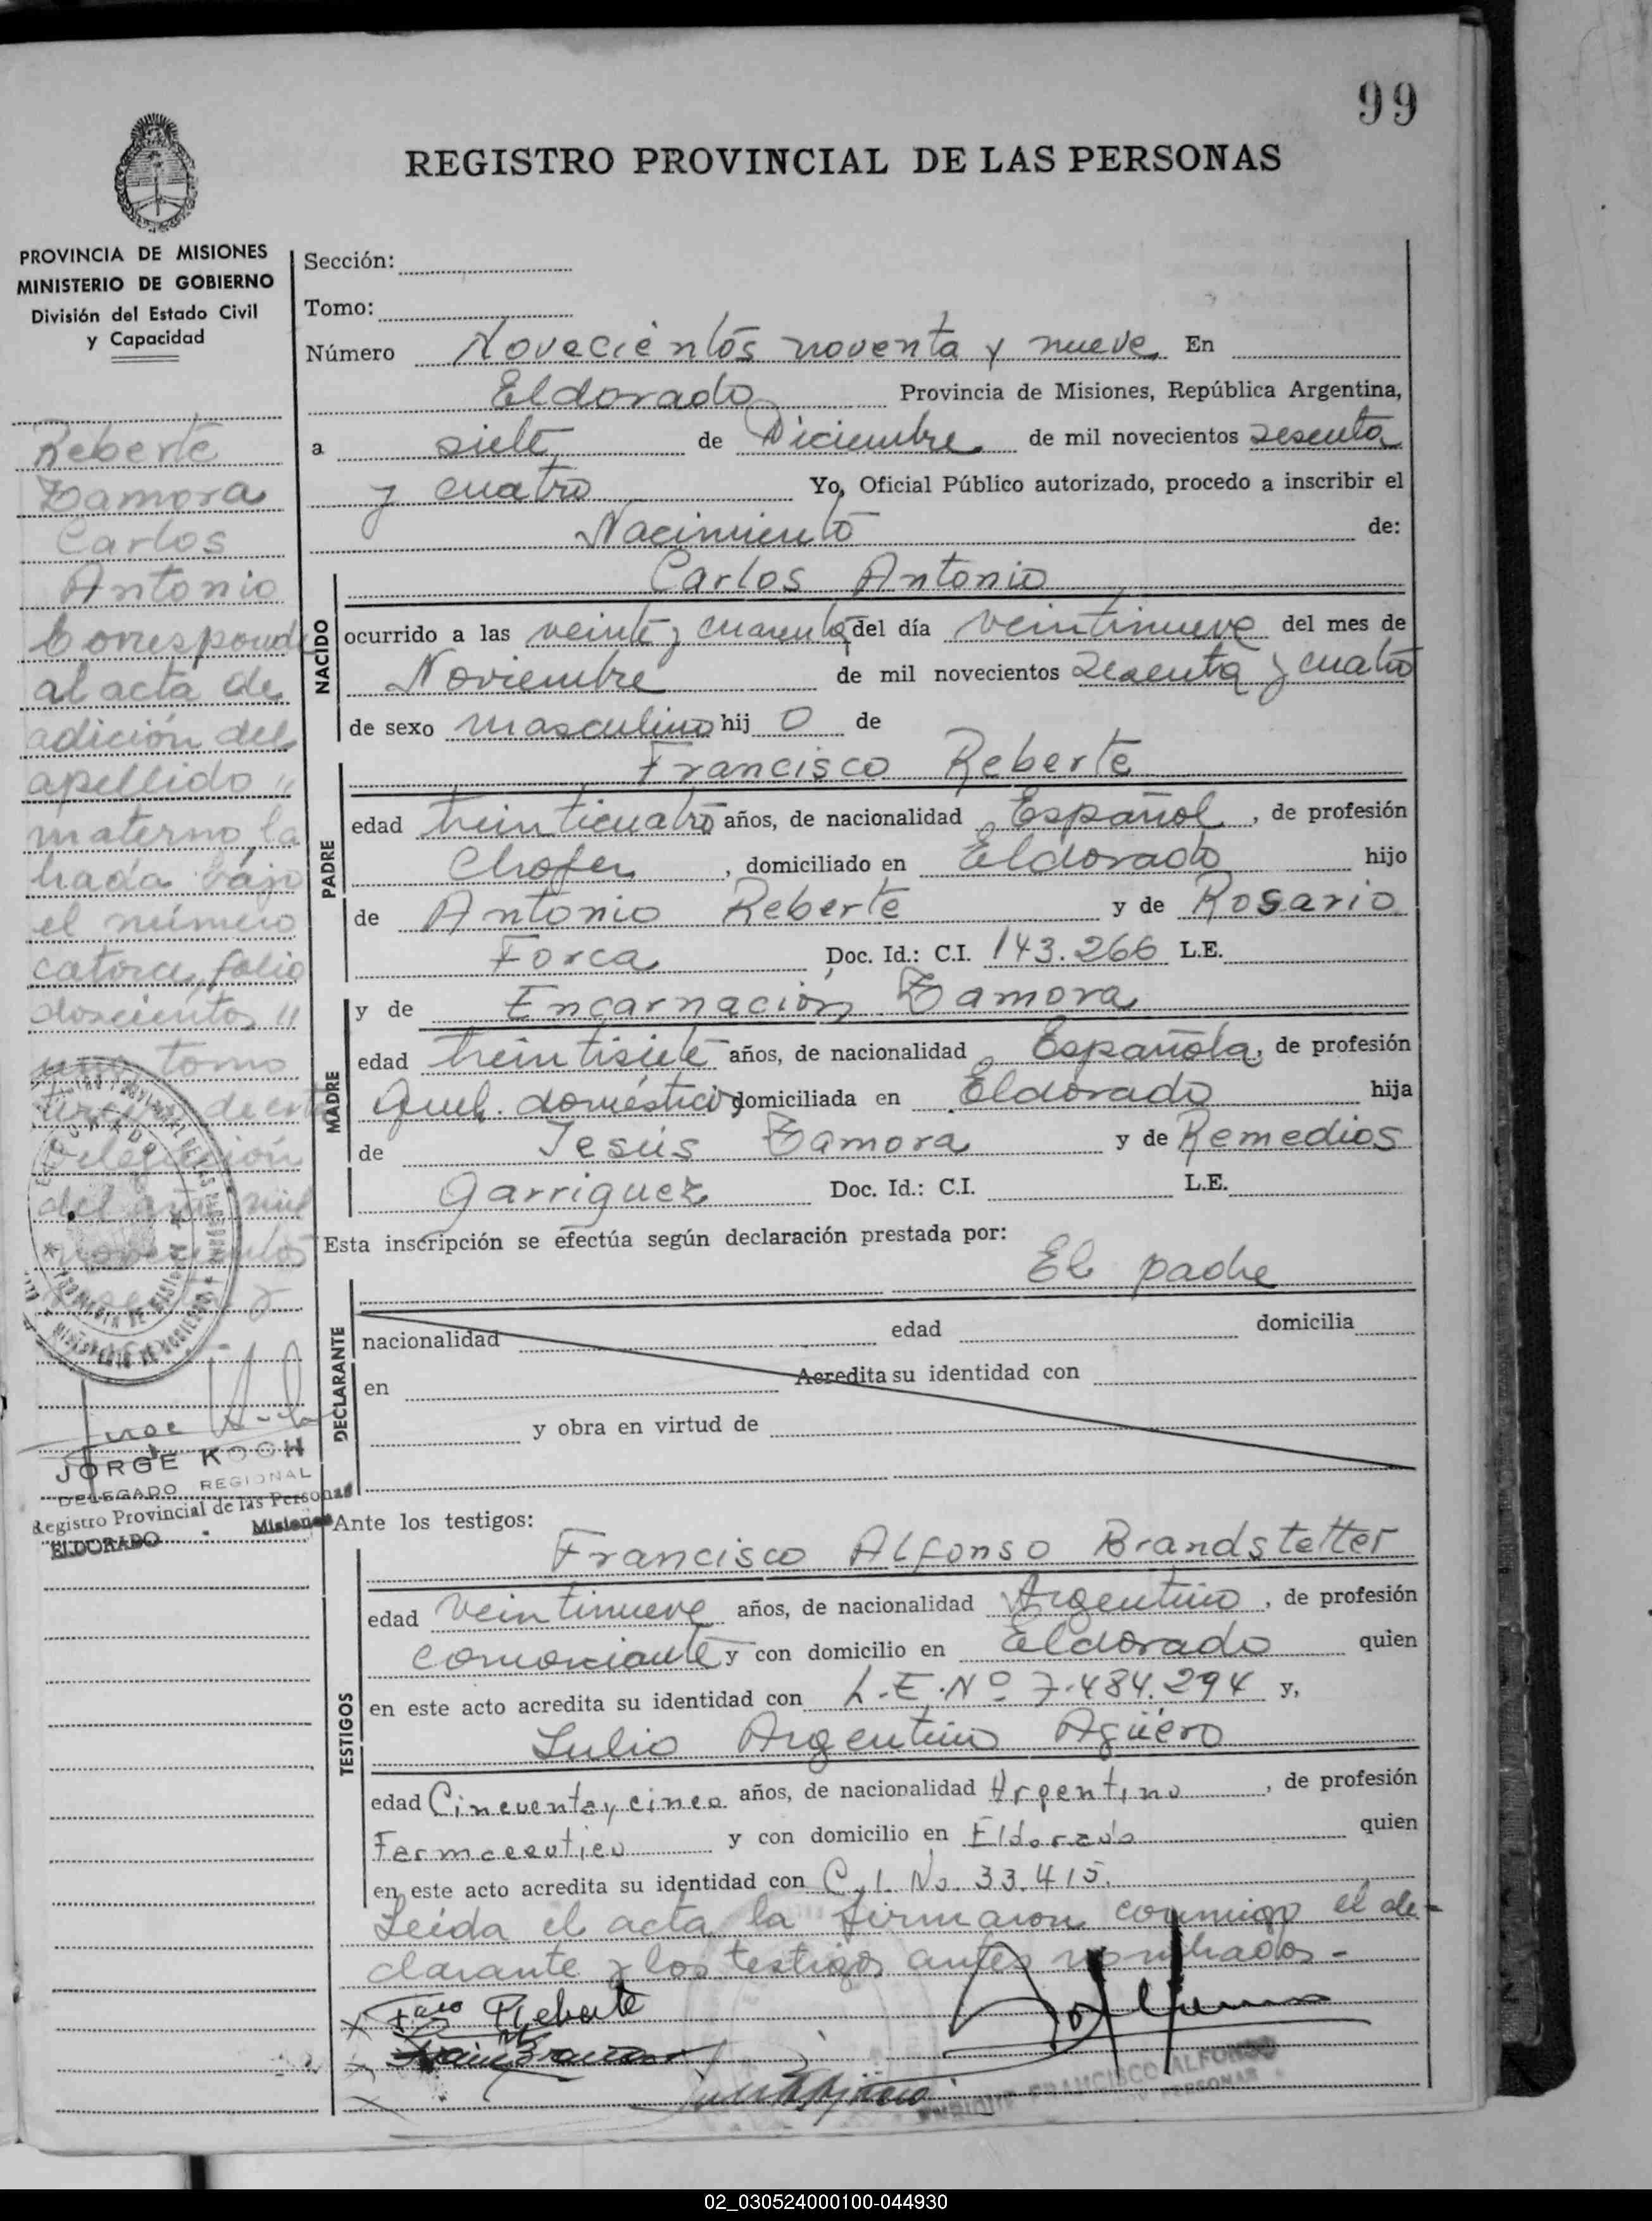 99
REGISTRO PROVINCIAL DE LAS PERSONAS
PROVINCIA DE MISIONES
MINISTERIO DE GOBIERNO
División del Estado Civil
y Capacidad
Reberte
Zamora
Carlos
Antonio
Corresponde
al acta de
adición del
apellido "
materno, la
brada bajo
el número
catorce, folio
doscientos "
uno tomo
de esta
Delegación
del año mil
novecientos
JORGE KOCH
DELEGADO REGIONAL
Registro Provincial de las Personas
ELDORADO - Misiones
Sección:
Tomo:
Número Novecientos noventa y nueve En
Eldorado Provincia de Misiones, República Argentina,
a siete de Diciembre de mil novecientos sesenta
y cuatro Yo, Oficial Público autorizado, procedo a inscribir el
Nacimiento de:
Carlos Antonio
NACIDO
ocurrido a las veinte y cuarenta del día veintinueve del mes de
Noviembre de mil novecientos sesenta y cuatro
de sexo masculino hij o de
Francisco Reberte
PADRE
edad treinticuatro años, de nacionalidad Español, de profesión
Chofer, domiciliado en Eldorado hijo
de Antonio Reberte y de Rosario
Forca Doc. Id.: C.I. 143.266 L.E.
y de Encarnación Zamora
MADRE
edad treintisiete años, de nacionalidad Española, de profesión
Queh. domésticos domiciliada en Eldorado hija
de Jesús Zamora y de Remedios
Garriguez Doc. Id.: C.I. L.E.
Esta inscripción se efectúa según declaración prestada por:
El padre
DECLARANTE
nacionalidad edad domicilia
en Acredita su identidad con
y obra en virtud de
Ante los testigos:
Francisco Alfonso Brandstetter
TESTIGOS
edad veintinueve años, de nacionalidad Argentino, de profesión
comerciante y con domicilio en Eldorado quien
en este acto acredita su identidad con L.E. Nº 7.484.294 y,
Julio Argentino Agüero
edad Cincuenta y cinco años, de nacionalidad Argentino, de profesión
Farmaceutico y con domicilio en Eldorado quien
en este acto acredita su identidad con C.I. No. 33.415.
Leída el acta, la firmaron conmigo el de-
clarante y los testigos antes nombrados.-
Fco Reberte
ENRIQUE FRANCISCO ALFONSO
02_030524000100-044930